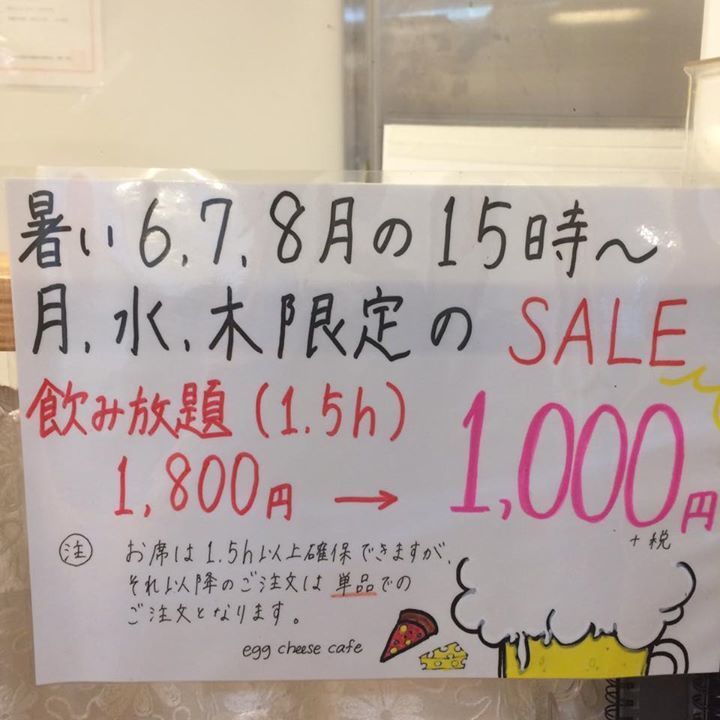 暑い6,7,8月の15時～
月,水,木限定のSALE
飲み放題(1.5h)
1,800円 → 1,000円
+税
注 お席は1.5h以上確保できますが、
それ以降のご注文は単品での
ご注文となります。
egg cheese cafe